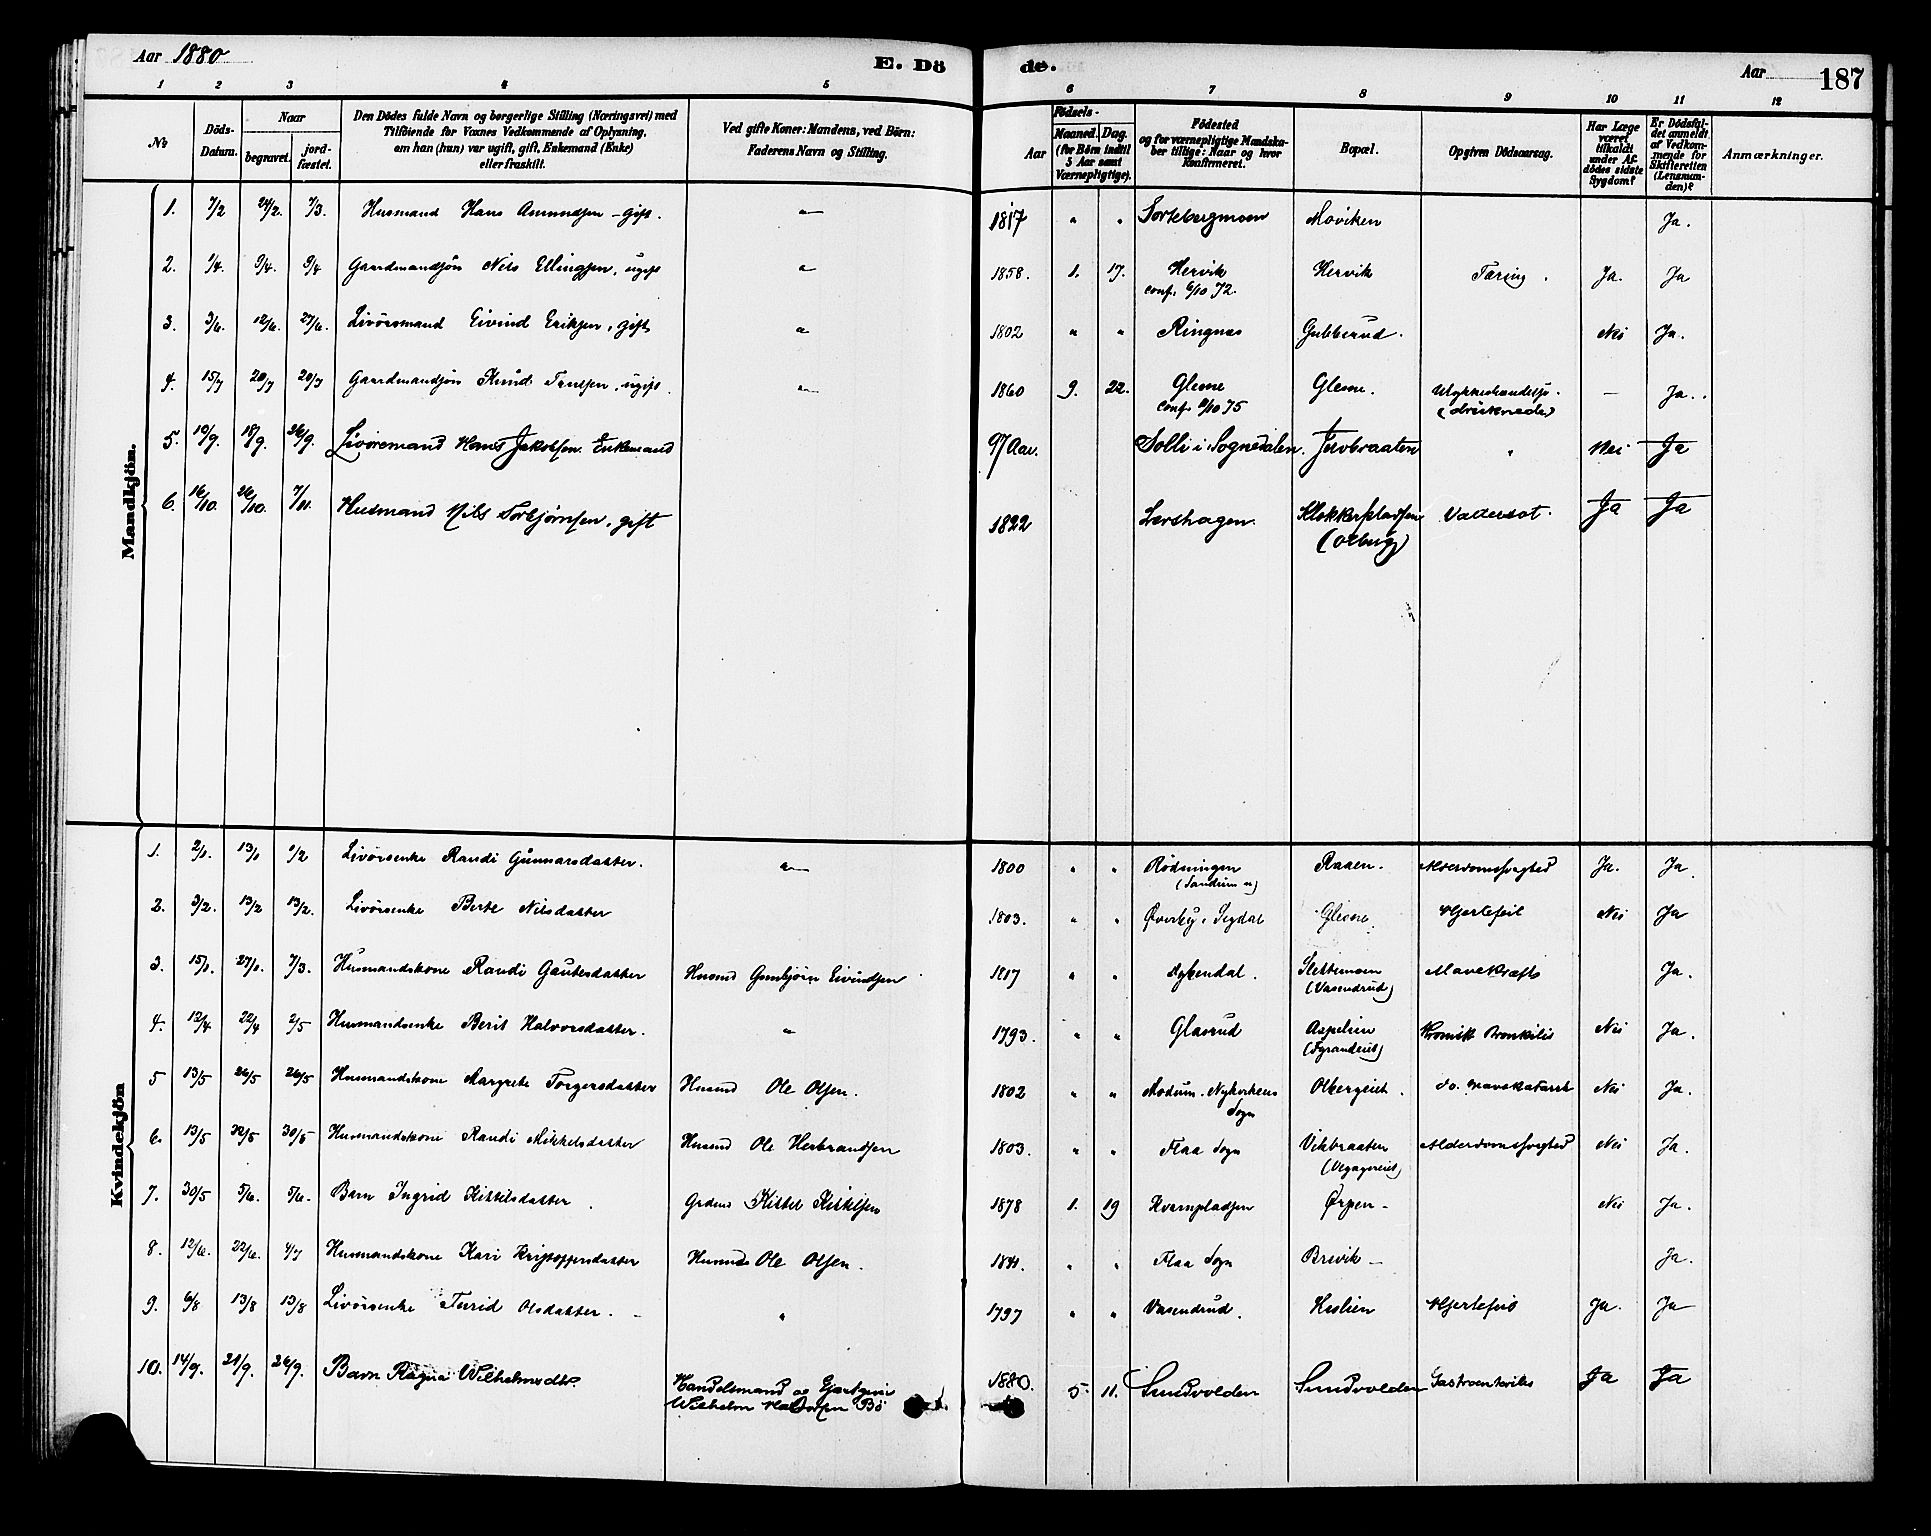 Aar 1880 E. Dö de. Aar 187
1 2 3 4 5 6 7 8 9 10 11 12
No
Döds-Datum.
Naar
begravet.
jord-fæstet.
Den Dödes fulde Navn og borgerlige Stilling (Næringsvei) med
Tilföiende for Voxnes Vedkommende af Oplysning,
om han (hun) var ugift, gift, Enkemand (Enke)
eller fraskilt.
Ved gifte Koner: Mandens, ved Börn:
Faderens Navn og Stilling.
Födsels-
Aar
Maaned. Dag.
(for Börn indtil
5 Aar samt
Værnepligtige).
Födested
og for værnepligtige Mandska-
ber tillige: Naar og hvor
Konfirmeret.
Bopæl.
Opgiven Dödsaarsag.
Har Læge
været
tilkaldt
under Af-
dödes sidste
Sygdom?
Er Dödsfal-
det anmeldt
af Vedkom-
mende for
Skifteretten
(Lensman-
den)?
Anmærkninger.
Mandkjön.
1. 7/2 24/2. 7/3. Husmand Hans Amundsen - gift. " 1817 " " Sorkbergmoen Moviken Ja.
2. 1/4. 9/4. 9/4 Gaardmandssön Nels Ellingsen, ugift " 1858. 1. 17. Hervik Hervik Tæring. Ja. Ja
conf. 6/10 72.
3. 3/6. 12/6. 27/6. Livörsmand Eivind Eriksen, gift " 1802 " " Ringnes Gubberud. Nei Ja.
4. 15/7 20/7 20/7 Gaardmandssön Knud ugift. " 1860 9. 22. Glesne Glesne. Ulykkeshændelse. — Ja.
conf. 75 (druknede)
5. 10/9. 18/9. 26/9. Livöremand Hans Jakobsen Enkemand 97 Aar. Solli i Sognedalen. " Nei Ja
6. 16/10. 26/10. 7/11. Husmand Nils Torbjørnsen, gift 1822 Lershagen. Klokkerpladsen Vattersot. Ja Ja
(Olberg)
Kvindekjön
1. 2/1. 13/1 1/2 Livörsenke Randi Gunnarsdatter. " 1800 " " Rödningen Raaen. Alderdomssvaghed Ja. Ja
2. 3/2. 13/2 13/2. Livörsenke Berte Nilsdatter 1803. " " Överby i Sigdal Glesne Hjertefeil Nei Ja
3. 15/1. 27/1. 7/3. Husmandskone Randi Gautesdatter Husmd Gunbjörn Eivindsen 1817 " " Slettemoen Mavekræft Ja.
(Vasendrud)
4. 12/4 22/4 2/5 Husmandsenke Berit Halvorsdatter. " 1793. " " Glasrud Aspelien Kronisk Bronkitis Nei Ja.
5 13/5 26/5 26/5 Husmandskone Margrete Torgersdatter Husmd Ole Olsen. 1802 " " Modum. Nykirkens Olbergeiet. do. Mavekatarrh Nei Ja.
Sogn
6. 13/5 30/5 Husmandskone Randi Mikkelsdatter Husmd Ole Herbrandsen 1803. " " Flaa Sogn Vikbraaten Alderdomssvaghed Nei Ja.
7. 30/5 5/6. 5/6. Barn Ingrid Kittilsdatter. Grdmd Kittel Kittelsen 1878 1. 19 Kvernpladsen Ørpen - Nei Ja.
8. 12/6. 22/6. 4/7 Husmandskone Kari Kristoffersdatter Husmd Ole Olsen. 1841. " " Flaa Sogn Brevik - Ja.
9. 6/8 13/8 13/8 Livörsenke Turid Olsdatter. - " 1797 " " Vasendrud. Heslien Hjertefeil Ja. Ja
10. 14/9. 21/9. 26/9. Barn Ragna Wilhelmsdtr. Handelsmand og Gjæstgiver 1880. 5. 11. Sundvolden Sundvolden Gastroenteritis Ja Ja
Wilhelm Halvorsen Bö